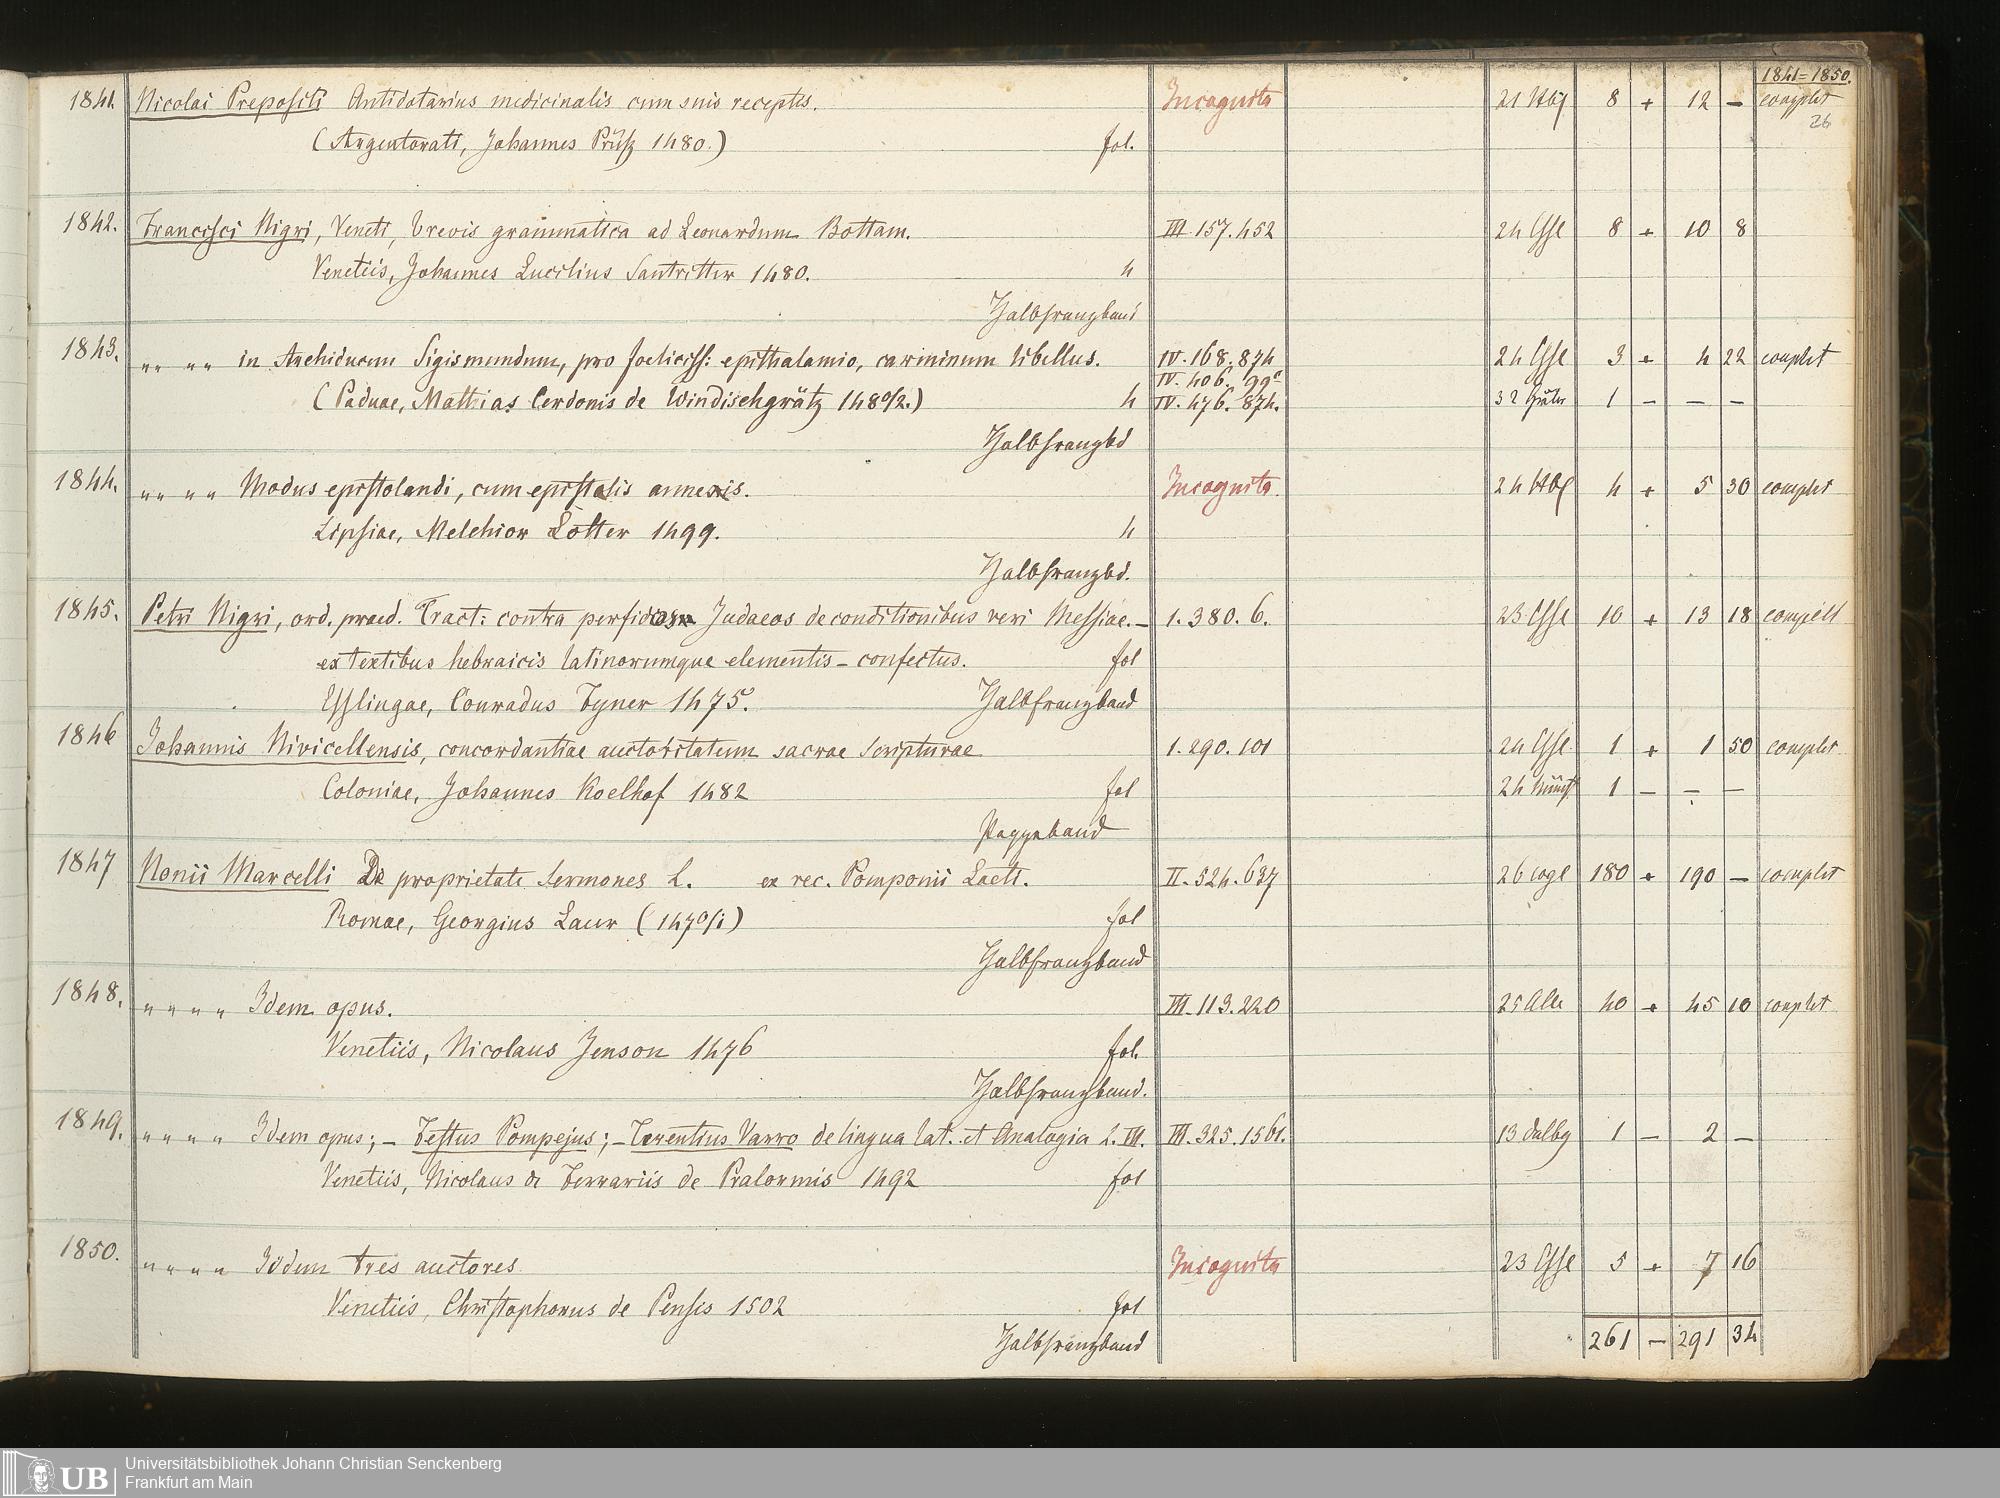 1841=1850.
1841. Nicolai Prepositi Antidotarius medicinalis cum suis receptis. Incognita 21 8 + 12 — complet
26
(Argentorati, Johannes Prüß 1480.) fol.
1842. Francisci Nigri, Veneti, brevis grammatica ad Leonardum Bottam. III. 157. 452 24 Esse 8 + 10 8
Venetiis, Johannes Lucilius Santritter 1480. 4
Halbfranzband
1843. „„ „„ in Archiducem Sigismundum, pro foeliciss: epithalamio, carminum libellus. IV. 168. 874 24 Esse 3 + 4 22 complet
IV. 406. 99
(Paduae, Matthias Cerdonis de Windischgrätz 1480/2.) 4 IV. 476. 874. 32 1 — — —
Halbfranzbd
1844. „„ „ „ Modus epistolandi, cum epistolis annexis. Incognita. 24 4 + 5 30 complet
Lipsiae, Melchior Lotter 1499. 4
Halbfranzbd.
1845. Petri Nigri, ord. praed. Tract: contra perfidos Judaeos de conditionibus veri Messiae.— 1. 380. 6. 23 Esse 10 + 13 18 complett
ex textibus hebraicis latinorumque elementis – confectus. fol
Esslingae, Conradus Fyner 1475. Halbfranzband
1846 Johannis Nivicellensis, concordantiae auctoritatum sacrae Scripturae 1. 290. 101 24 Esse 1 + 1 50 complet
Coloniae, Johannes Koelhof 1482 fol 24 1 — — —
Pappband
1847 Nonii Marcelli De proprietate Sermones L. ex rec. Pomponii Laeti. II. 524. 637 26 180 + 190 — complet
Romae, Georgius Laur (1470/1) fol
Halbfranzband
1848. „ „ „ „ Idem opus. III. 113. 220 25 40 + 45 10 complet
Venetiis, Nicolaus Jenson 1476 fol.
Halbfranzband.
1849. „ „ „ „ Idem opus; – Festus Pompejus; – Terentius Varro de lingua lat. et Analogia L. III. III. 325. 1561. 13 Dalbg 1 — 2 —
Venetiis, Nicolaus de Ferrariis de Pralormis 1492 fol
1850. „ „ „ „ Iidem tres auctores Incognita 23 Esse 5 + 7 16
Venetiis, Christophorus de Pensis 1502 fol
Halbfranzband 261 — 291 34
UB Universitätsbibliothek Johann Christian Senckenberg
Frankfurt am Main